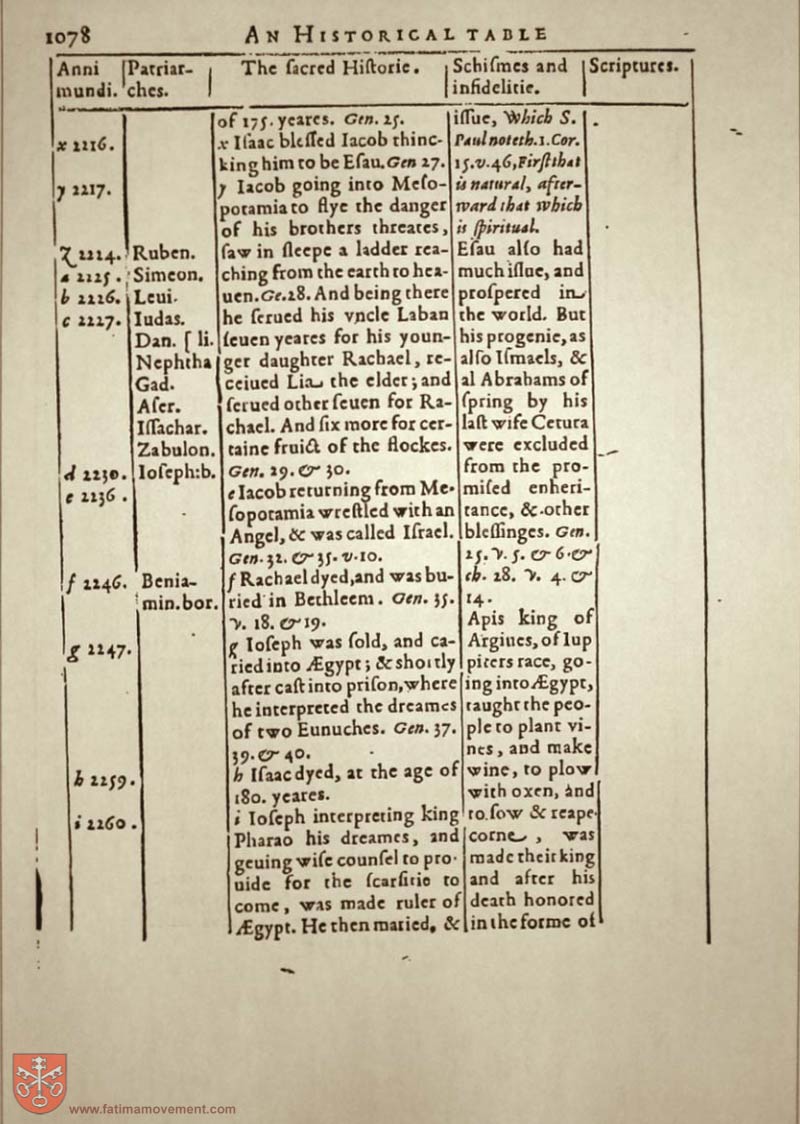 1078
AN HISTORICAL TABLE
Anni
mundi.
Patriar-
ches.
The ſacred Hiſtorie.
Schiſmes and
infidelitie.
Scriptures.
x 2216.
y 2217.
z 2224.
a 2225.
b 2226.
c 2227.
d 2230.
e 2236.
f 2246.
g 2247.
h 2259.
i 2260.
Ruben.
Simeon.
Leui.
Iudas.
Dan. ſ li.
Nephtha
Gad.
Aſer.
Iſſachar.
Zabulon.
Ioſeph:b.
Benia-
min.bor.
of 175. yeares. Gen. 25.
x Iſaac bleſſed Iacob thinc-
king him to be Eſau. Gen 27.
y Iacob going into Meſo-
potamia to flye the danger
of his brothers threates,
ſaw in ſleepe a ladder rea-
ching from the earth to hea-
uen. Ge. 28. And being there
he ſerued his vncle Laban
ſeuen yeares for his youn-
ger daughter Rachael, re-
ceiued Lia the elder; and
ſerued other ſeuen for Ra-
chael. And ſix more for cer-
taine fruict of the flockes.
Gen. 29. & 30.
e Iacob returning from Me-
ſopotamia wreſtled with an
Angel, & was called Iſrael.
Gen. 32. & 35. v. 10.
f Rachael dyed, and was bu-
ried in Bethleem. Gen. 35.
v. 18. & 19.
g Ioſeph was ſold, and ca-
ried into Ægypt; & shortly
after caſt into priſon, where
he interpreted the dreames
of two Eunuches. Gen. 37.
39. & 40.
h Iſaac dyed, at the age of
180. yeares.
i Ioſeph interpreting king
Pharao his dreames, and
geuing wiſe counſel to pro-
uide for the ſcarſitie to
come, was made ruler of
Ægypt. He then maried, &
iſſue, Which S.
Paul noteth. 1. Cor.
15. v. 46, Firſt that
is natural, after-
ward that which
is ſpiritual.
Eſau alſo had
much iſſue, and
proſpered in
the world. But
his progenie, as
alſo Iſmaels, &
al Abrahams of
ſpring by his
laſt wife Cetura
were excluded
from the pro-
miſed enheri-
tance, & other
bleſſinges. Gen.
25. v. 5. & 6. &
ch. 28. v. 4. &
14.
Apis king of
Argiues, of Iup
piters race, go-
ing into Ægypt,
taught the peo-
ple to plant vi-
nes, and make
wine, to plow
with oxen, and
to ſow & reape
corne, was
made their king
and after his
death honored
in the forme of
www.fatimamovement.com